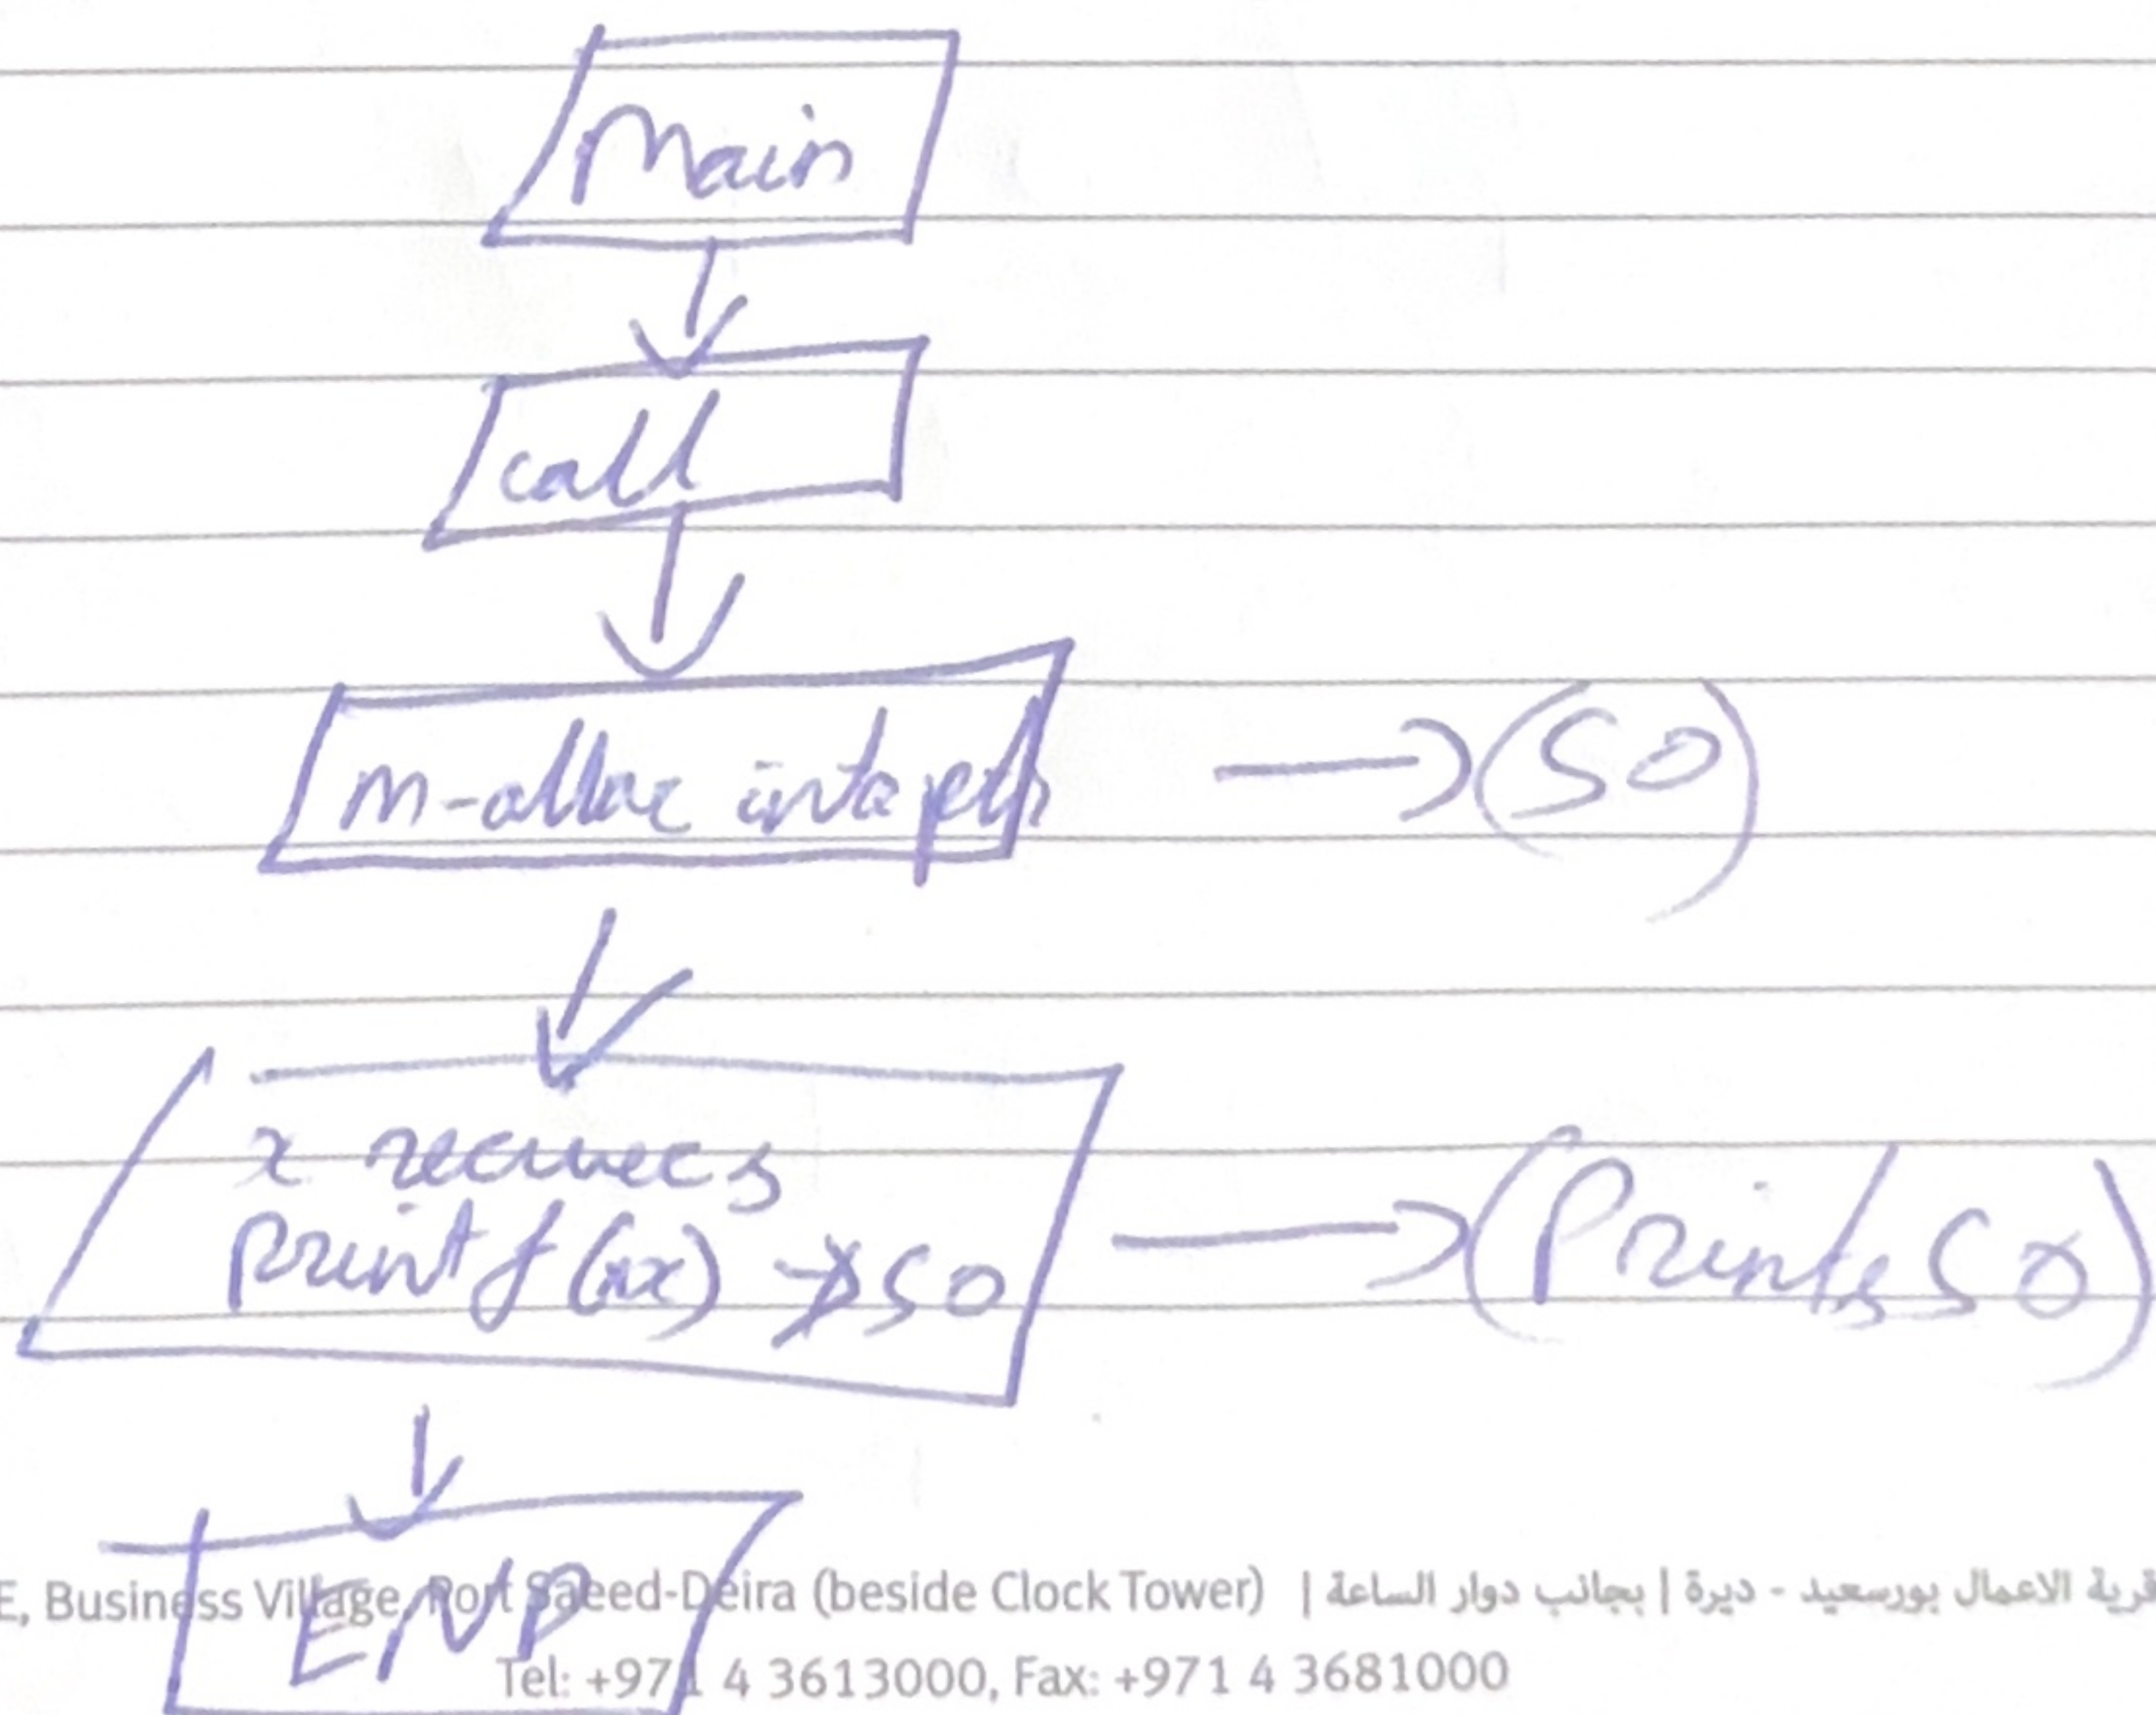 Main
call
m-alloc
→ (50)
x
printf(x) → 50
→ (Prints 50)
END
E, Business Village, Port Saeed-Deira (beside Clock Tower) | قرية الاعمال بورسعيد - ديرة | بجانب دوار الساعة
Tel: +971 4 3613000, Fax: +971 4 3681000